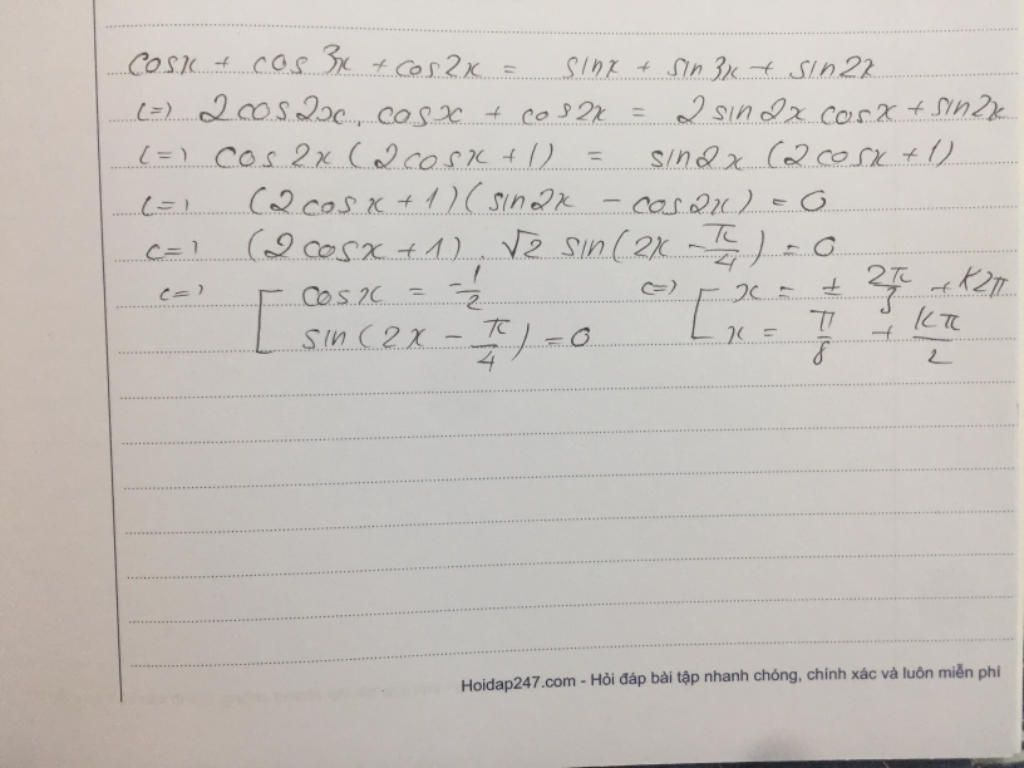 cosx + cos 3x + cos2x = sinx + sin 3x + sin2x
<=> 2cos2x. cosx + cos2x = 2 sin2x cosx + sin2x
<=> cos2x (2cosx + 1) = sin2x (2cosx + 1)
<=> (2cosx + 1)(sin2x - cos2x) = 0
<=> (2cosx + 1). √2 sin(2x - π/4) = 0
<=> [ cosx = -1/2 <=> [ x = ± 2π/3 + k2π
sin(2x - π/4) = 0 x = π/8 + kπ/2
Hoidap247.com - Hỏi đáp bài tập nhanh chóng, chính xác và luôn miễn phí